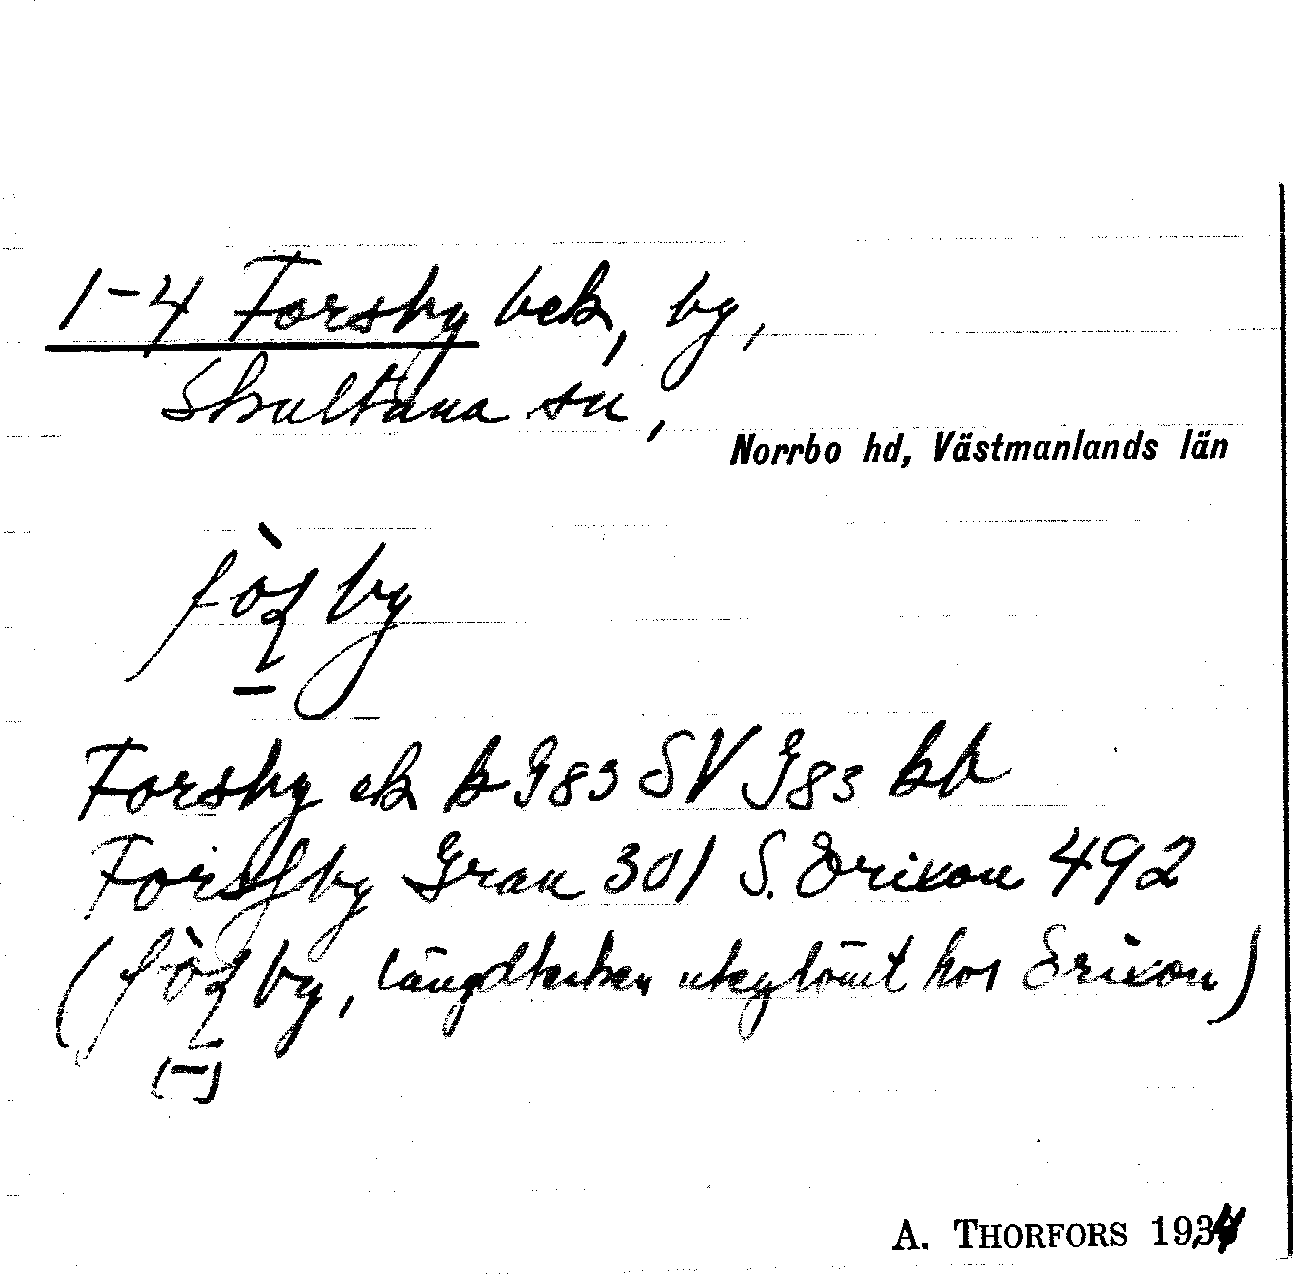 1-4 Forsby bek, by,
Skultuna sn,
Norrbo hd, Västmanlands län
by
Forsby ek k G83 SV G83 kb
Forssby Grau 301 S. Erixon 492
(by, längdtecken utglömt hos Erixon)
(-)
A. THORFORS 1934